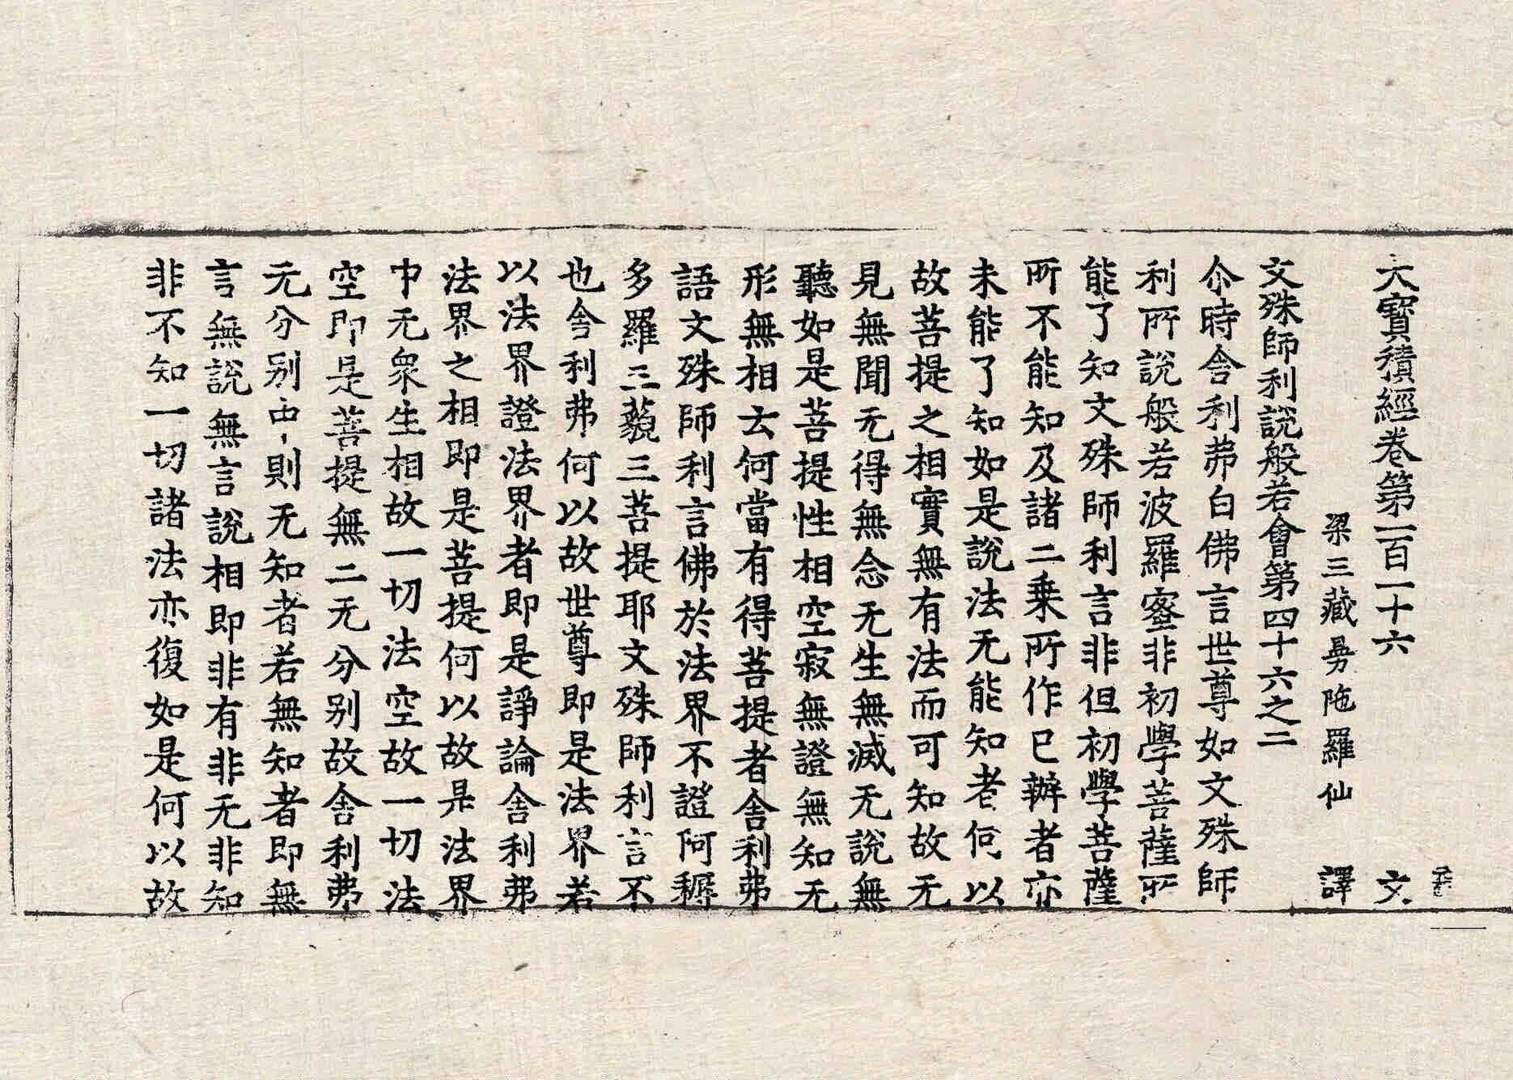 大寶積經卷第一百一十六 文
梁三藏曼陁羅仙 譯
文殊師利說般若會第四十六之二
尒時舎利弗白佛言世尊如文殊師
利所說般若波羅蜜非初學菩薩所
能了知文殊師利言非但初學菩薩
所不能知及諸二乗所作已辦者亦
未能了知如是說法无能知者何以
故菩提之相實無有法而可知故无
見無聞无得無念无生無滅无說無
聽如是菩提性相空寂無證無知无
形無相云何當有得菩提者舎利弗
語文殊師利言佛於法界不證阿耨
多羅三藐三菩提耶文殊師利言不
也舎利弗何以故世尊即是法界若
以法界證法界者即是諍論舎利弗
法界之相即是菩提何以故是法界
中无衆生相故一切法空故一切法
空即是菩提無二无分别故舎利弗
无分别中則无知者若無知者即無
言無說無言說相即非有非无非知
非不知一切諸法亦復如是何以故